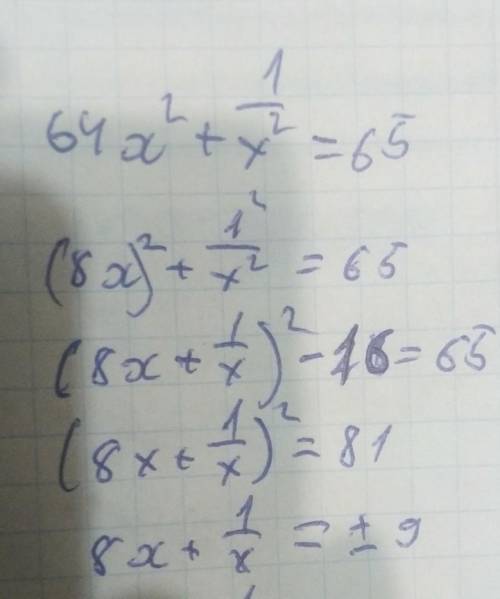 64x² + 1/x² = 65
(8x)² + 1²/x² = 65
(8x + 1/x)² - 16 = 65
(8x + 1/x)² = 81
8x + 1/x = ± 9